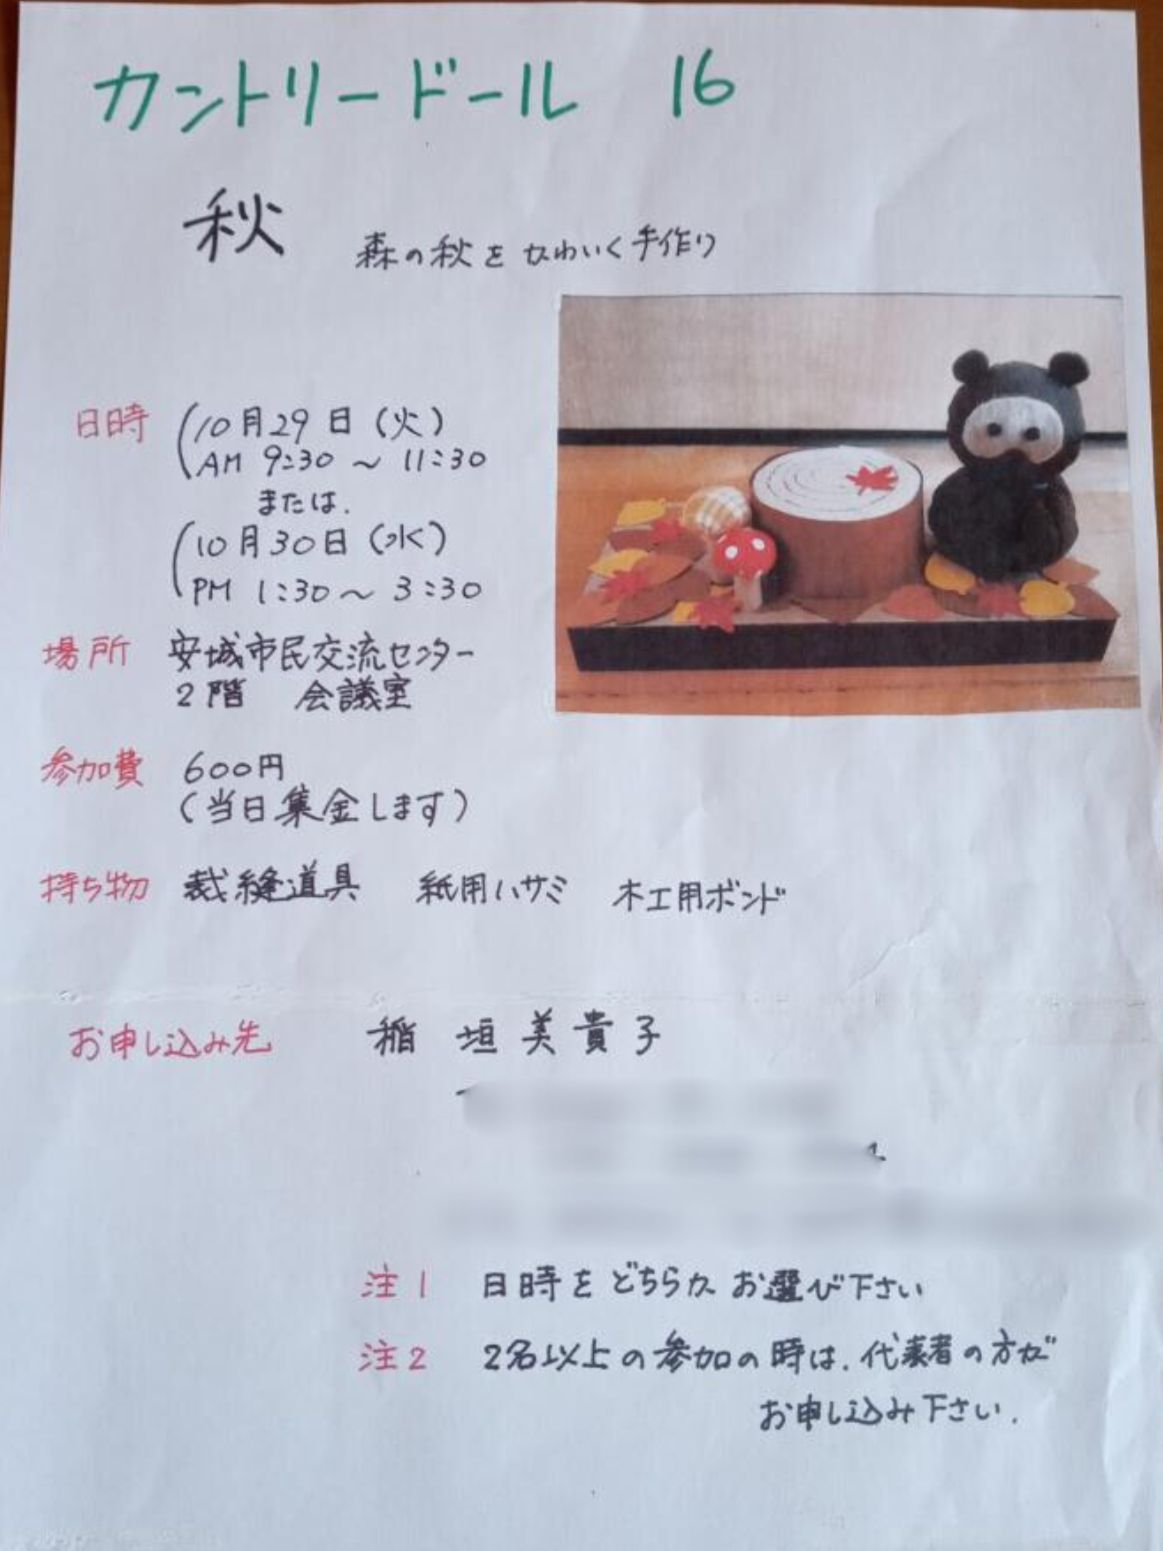 カントリードール 16
秋 森の秋をかわいく手作り
日時 (10月29日(火)
AM 9:30 ~ 11:30
または.
(10月30日(水)
PM 1:30 ~ 3:30
場所 安城市民交流センター
2階 会議室
参加費 600円
(当日集金します)
持ち物 裁縫道具 紙用ハサミ 木工用ボンド
お申し込み先 稲垣美貴子
注1 日時をどちらか お選び下さい
注2 2名以上の参加の時は.代表者の方が
お申し込み下さい.